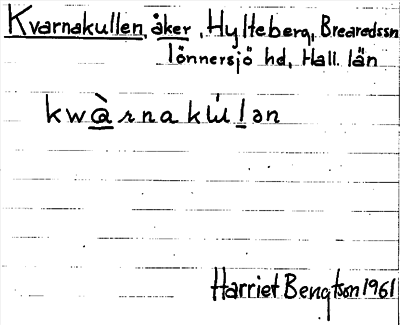 Kvarnakullen, åker, Hylteberg, Brearedssn
Tönnersjö hd, Hall. län
kwàrnakúlən
Harriet Bengtson 1961